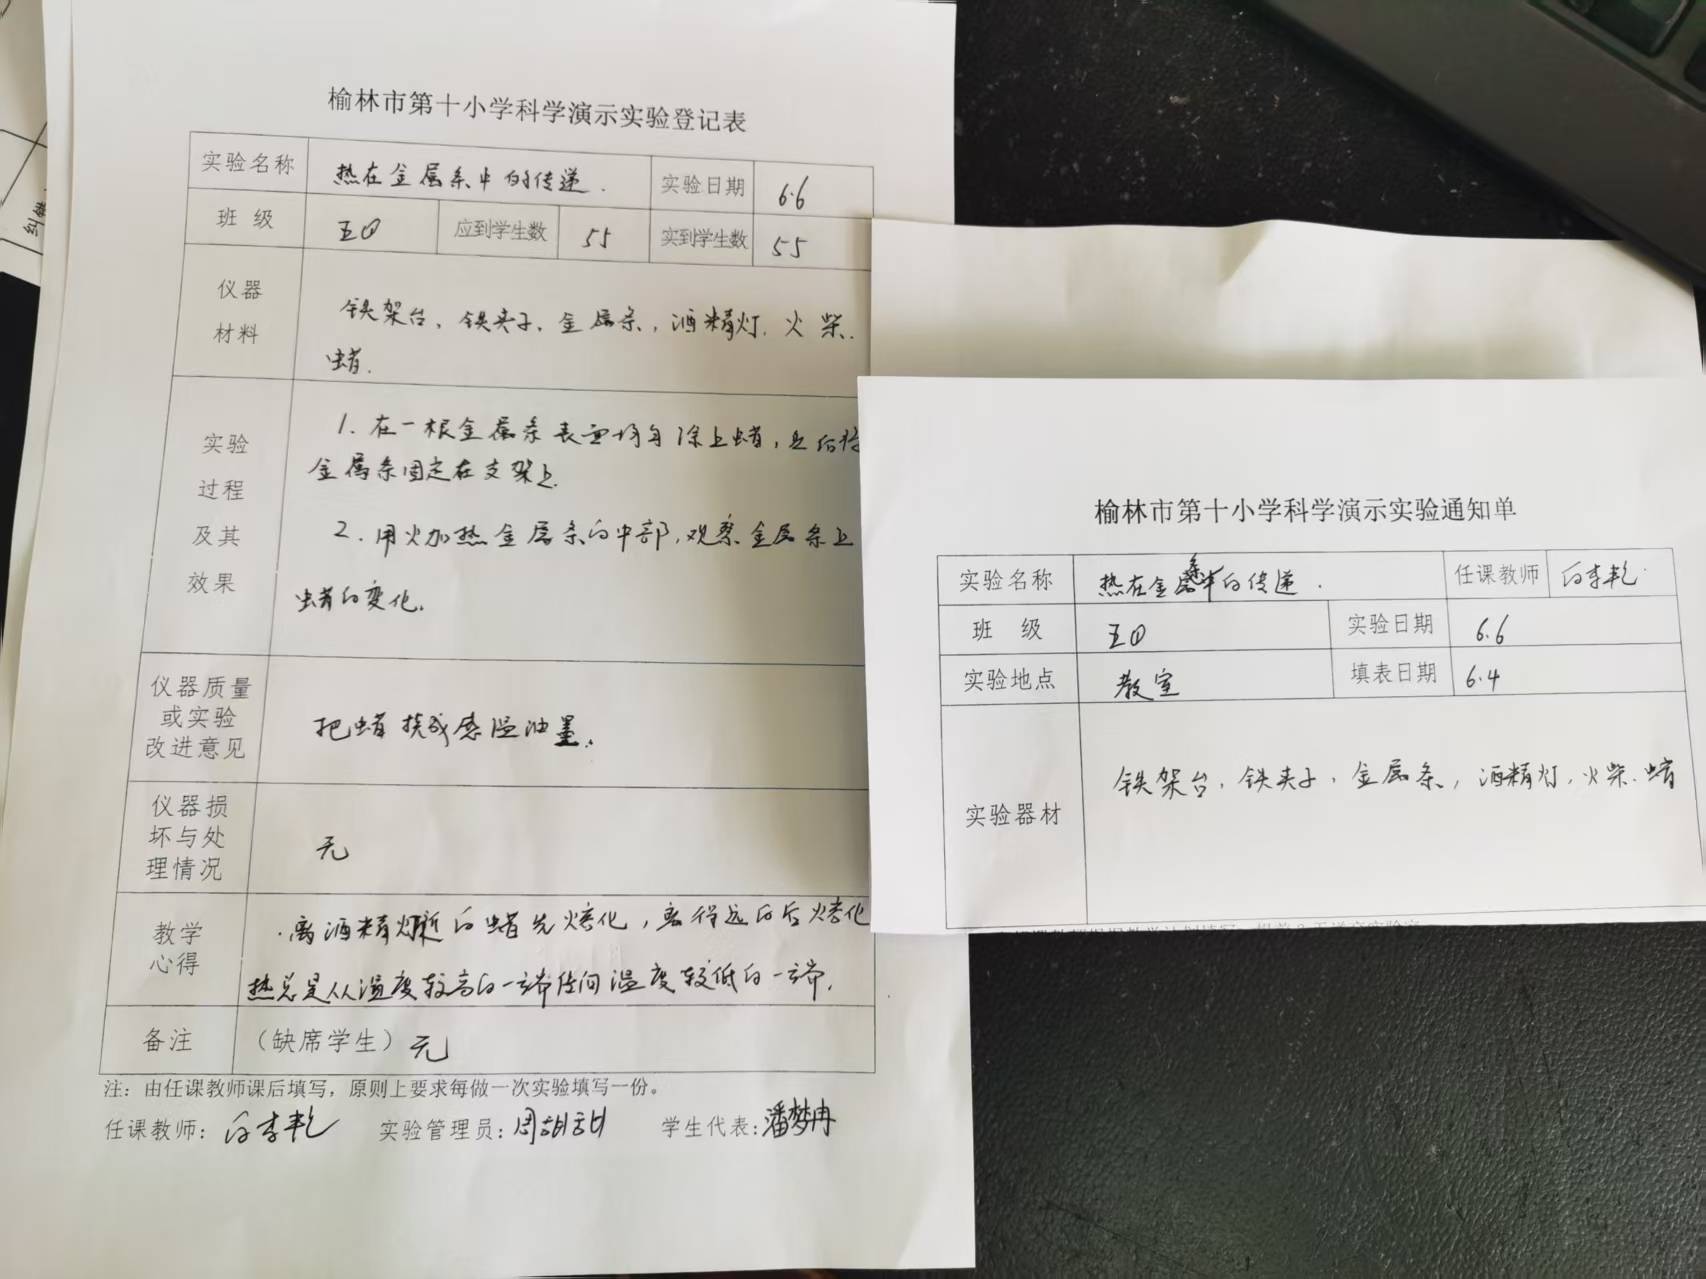 榆林市第十小学科学演示实验登记表
实验名称 热在金属条中的传递. 实验日期 6.6
班 级 五① 应到学生数 55 实到学生数 55
仪器
材料
铁架台、铁夹子、金属条,酒精灯.火柴.
蜡.
实验
过程
及其
效果
1.在一根金属条表面均匀涂上蜡,然后将
金属条固定在支架上.
2.用火加热金属条的中部,观察金属条上
蜡的变化.
仪器质量
或实验
改进意见
把蜡换成感温油墨.
仪器损
坏与处
理情况
无
教学
心得
离酒精灯近的蜡先熔化,离得远的后熔化
热总是从温度较高的一端传向温度较低的一端.
备注 (缺席学生)无
注:由任课教师课后填写,原则上要求每做一次实验填写一份。
任课教师: 实验管理员: 学生代表:潘梦冉
榆林市第十小学科学演示实验通知单
实验名称 热在金属条中的传递. 任课教师
班 级 五① 实验日期 6.6
实验地点 教室 填表日期 6.4
实验器材 铁架台,铁夹子,金属条,酒精灯,火柴.蜡